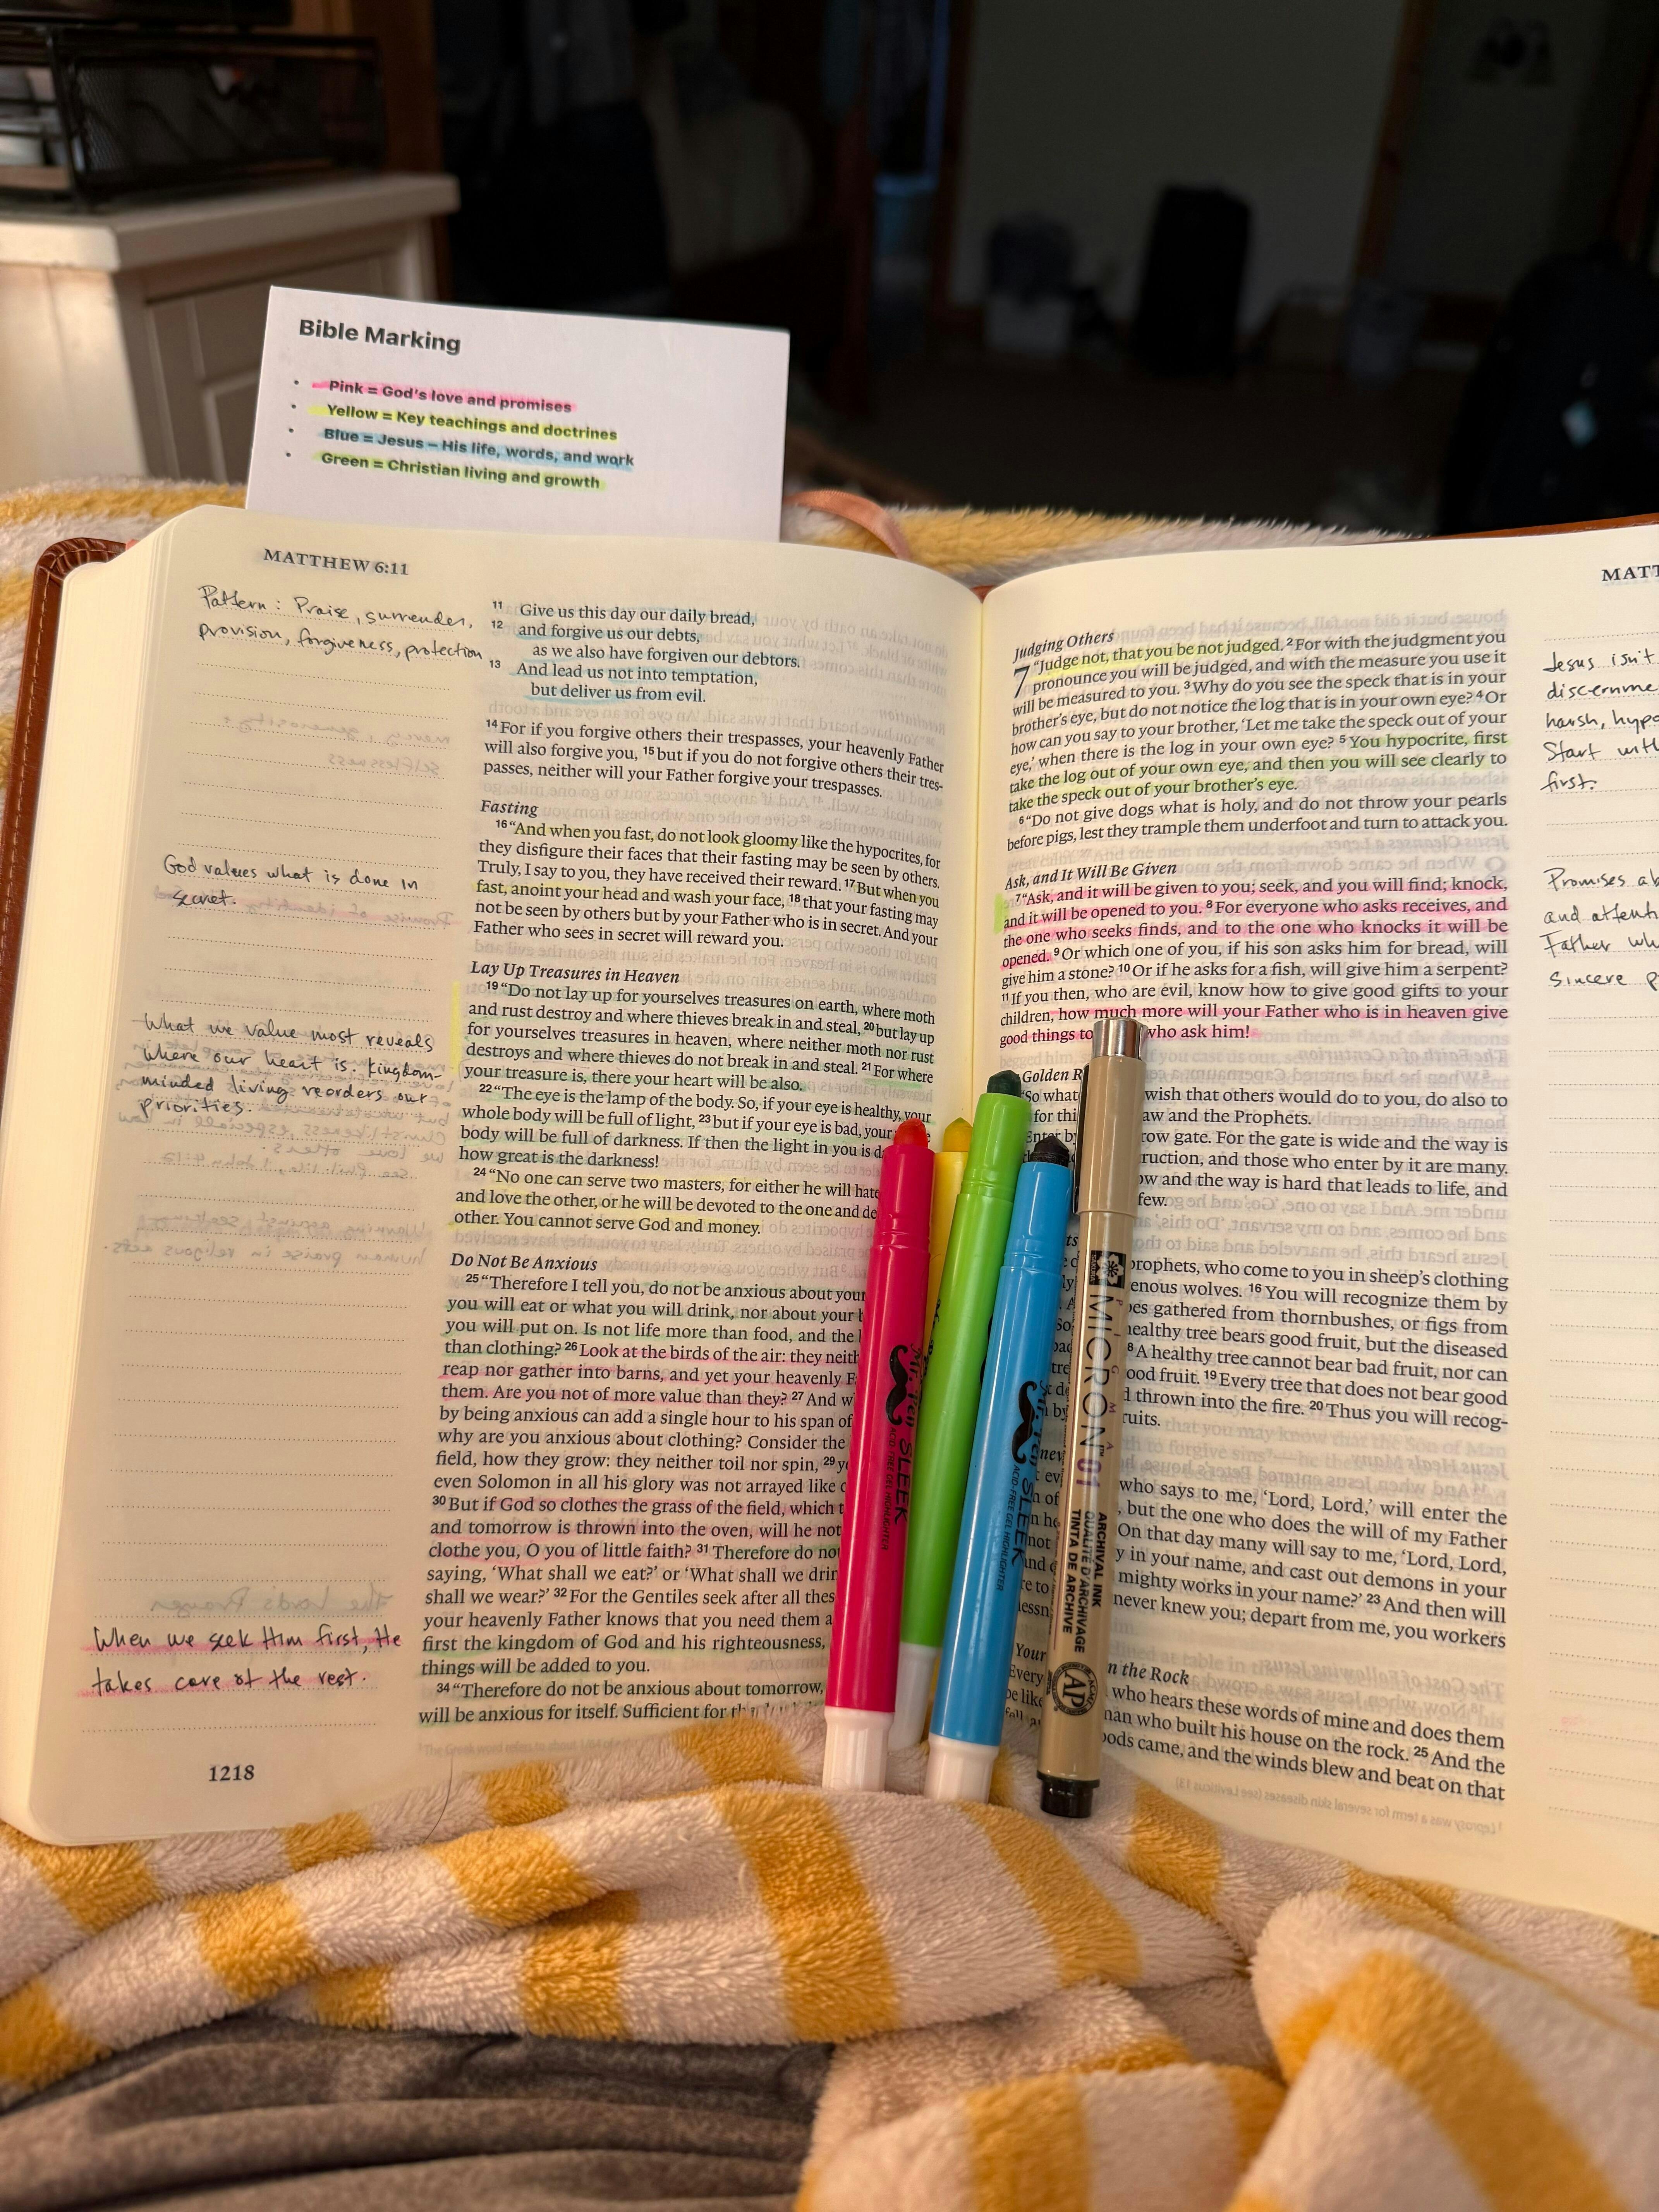 Bible Marking
• Pink = God's love and promises
• Yellow = Key teachings and doctrines
• Blue = Jesus – His life, words, and work
• Green = Christian living and growth
MATTHEW 6:11
Pattern: Praise, surrender,
provision, forgiveness, protection
God values what is done in
secret.
What we value most reveals
where our heart is. Kingdom-
minded living reorders our
priorities.
When we seek Him first, He
takes care of the rest.
1218
11 Give us this day our daily bread,
12 and forgive us our debts,
as we also have forgiven our debtors.
13 And lead us not into temptation,
but deliver us from evil.
14 For if you forgive others their trespasses, your heavenly Father
will also forgive you, 15 but if you do not forgive others their tres-
passes, neither will your Father forgive your trespasses.
Fasting
16 “And when you fast, do not look gloomy like the hypocrites, for
they disfigure their faces that their fasting may be seen by others.
Truly, I say to you, they have received their reward. 17 But when you
fast, anoint your head and wash your face, 18 that your fasting may
not be seen by others but by your Father who is in secret. And your
Father who sees in secret will reward you.
Lay Up Treasures in Heaven
19 “Do not lay up for yourselves treasures on earth, where moth
and rust destroy and where thieves break in and steal, 20 but lay up
for yourselves treasures in heaven, where neither moth nor rust
destroys and where thieves do not break in and steal. 21 For where
your treasure is, there your heart will be also.
22 “The eye is the lamp of the body. So, if your eye is healthy, your
whole body will be full of light, 23 but if your eye is bad, your
body will be full of darkness. If then the light in you is
how great is the darkness!
24 “No one can serve two masters, for either he will hate
and love the other, or he will be devoted to the one and
other. You cannot serve God and money.
Do Not Be Anxious
25 “Therefore I tell you, do not be anxious about your
you will eat or what you will drink, nor about your
you will put on. Is not life more than food, and the
than clothing? 26 Look at the birds of the air: they
reap nor gather into barns, and yet your heavenly
them. Are you not of more value than they? 27 And
by being anxious can add a single hour to his span of
why are you anxious about clothing? Consider the
field, how they grow: they neither toil nor spin, 29
even Solomon in all his glory was not arrayed like
30 But if God so clothes the grass of the field, which
and tomorrow is thrown into the oven, will he not
clothe you, O you of little faith? 31 Therefore do
saying, ‘What shall we eat?’ or ‘What shall we
shall we wear?’ 32 For the Gentiles seek after all
your heavenly Father knows that you need them
first the kingdom of God and his righteousness,
things will be added to you.
34 “Therefore do not be anxious about tomorrow,
will be anxious for itself. Sufficient for
MATT
Judging Others
7 “Judge not, that you be not judged. 2 For with the judgment you
pronounce you will be judged, and with the measure you use it
will be measured to you. 3 Why do you see the speck that is in your
brother's eye, but do not notice the log that is in your own eye? 4 Or
how can you say to your brother, ‘Let me take the speck out of your
eye,’ when there is the log in your own eye? 5 You hypocrite, first
take the log out of your own eye, and then you will see clearly to
take the speck out of your brother's eye.
6 “Do not give dogs what is holy, and do not throw your pearls
before pigs, lest they trample them underfoot and turn to attack you.
Ask, and It Will Be Given
7 “Ask, and it will be given to you; seek, and you will find; knock,
and it will be opened to you. 8 For everyone who asks receives, and
the one who seeks finds, and to the one who knocks it will be
opened. 9 Or which one of you, if his son asks him for bread, will
give him a stone? 10 Or if he asks for a fish, will give him a serpent?
11 If you then, who are evil, know how to give good gifts to your
children, how much more will your Father who is in heaven give
good things to who ask him!
Golden
So what wish that others would do to you, do also to
for aw and the Prophets.
Enter by row gate. For the gate is wide and the way is
ruction, and those who enter by it are many.
ow and the way is hard that leads to life, and
few.
prophets, who come to you in sheep's clothing
enous wolves. 16 You will recognize them by
pes gathered from thornbushes, or figs from
healthy tree bears good fruit, but the diseased
8 A healthy tree cannot bear bad fruit, nor can
ood fruit. 19 Every tree that does not bear good
d thrown into the fire. 20 Thus you will recog-
ruits.
who says to me, ‘Lord, Lord,’ will enter the
, but the one who does the will of my Father
On that day many will say to me, ‘Lord, Lord,
y in your name, and cast out demons in your
mighty works in your name?’ 23 And then will
never knew you; depart from me, you workers
n the Rock
who hears these words of mine and does them
man who built his house on the rock. 25 And the
oods came, and the winds blew and beat on that
Jesus isn't
harsh,
Start
first.
Promises
and
Father
sincere
Mr. Pen SLEEK
ACID-FREE GEL HIGHLIGHTER
Mr. Pen SLEEK
ACID-FREE GEL HIGHLIGHTER
PIGMA
MICRON 01
ARCHIVAL INK
QUALITÉ D'ARCHIVAGE
TINTA DE ARCHIVE
AP